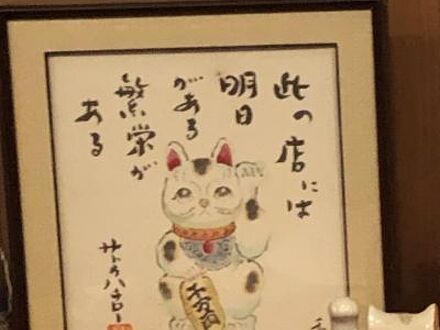 此の店には
明日
がある
繁栄が
ある
サトウハチロー